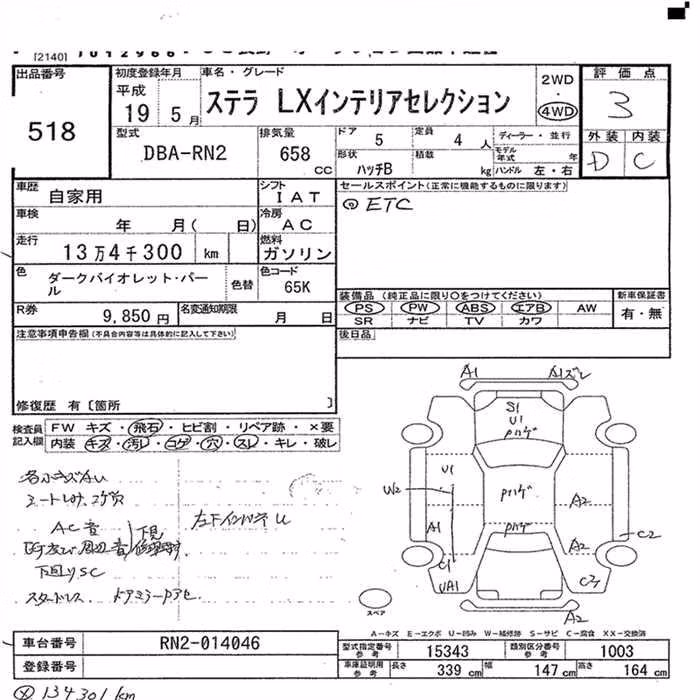 [2140]
出品番号 初度登録年月 車名・グレード 2WD 評価点
518 平成 19 5月 ステラ LXインテリアセレクション 4WD 3
型式 排気量 ドア 定員 ディーラー・並行 外装 内装
DBA-RN2 658 CC 5 4人 モデル年式 年 D C
形状 積載 kg ハンドル 左・右
ハッチB
車歴 自家用 シフト IAT セールスポイント(正常に機能するものに限ります)
車検 年 月( 日) 冷房 AC ETC
走行 13万4千300 km 燃料 ガソリン
色 ダークバイオレット・パール 色替 色コード 65K
装備品 (純正品に限り○をつけてください) 新車保証書
R券 9,850円 名変通知期限 月 日 PS PW ABS エアB AW 有・無
SR ナビ TV カワ
注意事項申告欄(不具合内容等は具体的に記入して下さい) 後日品
修復歴 有〔箇所 〕
検査員記入欄 FW キズ・飛石・ヒビ割・リペア跡・×要
内装 キズ・汚レ・コゲ・穴・スレ・キレ・破レ
A1 A1ズレ
S1
U1
Pハゲ
U1 W2 Pハゲ A2
A1 Pハゲ A2 C2
C1
UA1
A2
AC音
左下インパネU
下回りSC
スタッドレス
スペア
A-キズ E-エクボ U-凹み W-補修跡 S-サビ C-腐食 XX-交換済
車台番号 RN2-014046 型式指定番号 参考 15343 類別区分番号 参考 1003
登録番号 車庫証明用 参考 長さ 339 cm 幅 147 cm 高さ 164 cm
134301km